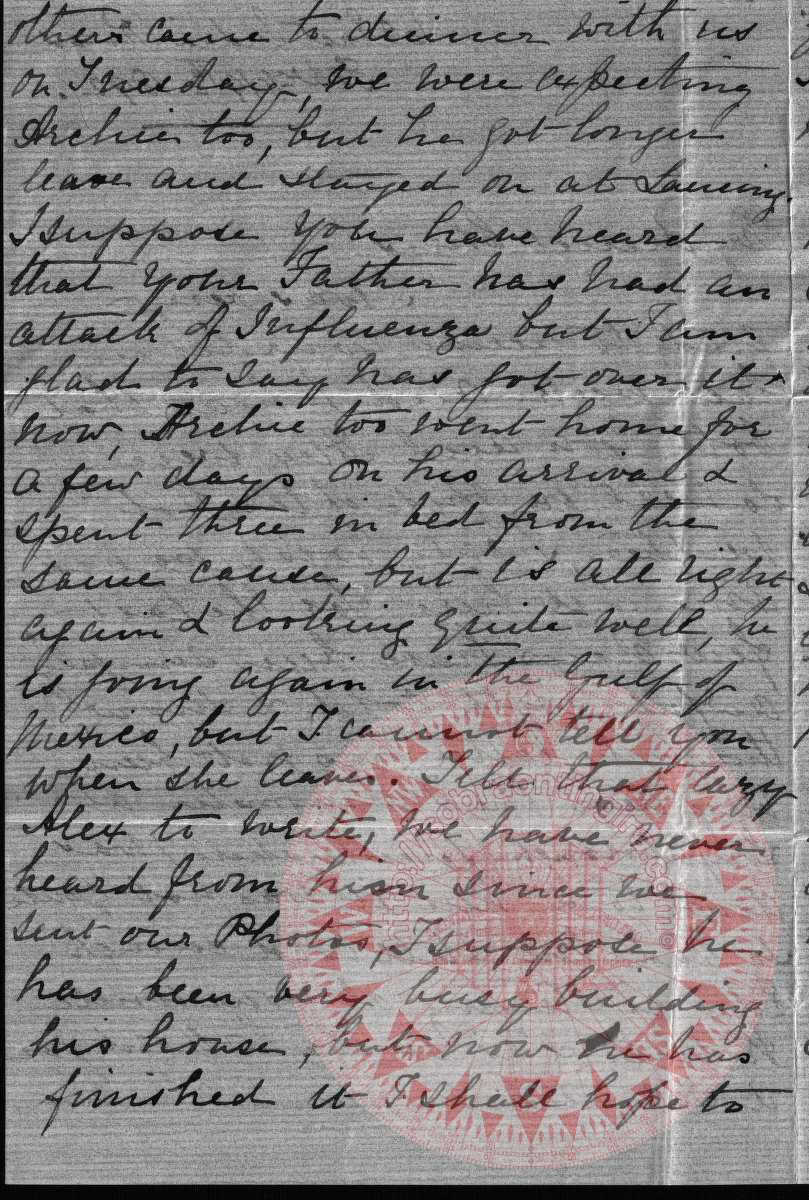 others came to dinner with us
on Tuesday, we were expecting
Archie too, but he got longer
leave and stayed on at Lancing.
I suppose you have heard
that your Father has had an
attack of Influenza but I am
glad to say has got over it
now, Archie too went home for
a few days on his arrival &
spent three in bed from the
same cause, but is all right
again & looking quite well, he
is going again in the Gulf of
Mexico, but I cannot tell you
when she leaves. Tell that lazy
Alex to write, we have never
heard from him since we
sent our Photos, I suppose he
has been very busy building
his house, but now he has
finished it I shall hope to